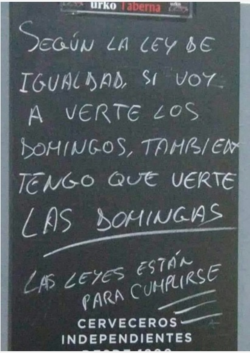 urko Taberna
SEGÚN LA LEY DE
IGUALDAD, SI VOY
A VERTE LOS
DOMINGOS, TAMBIEN
TENGO QUE VERTE
LAS DOMINGAS
LAS LEYES ESTÁN
PARA CUMPLIRSE
CERVECEROS
INDEPENDIENTES
DESDE